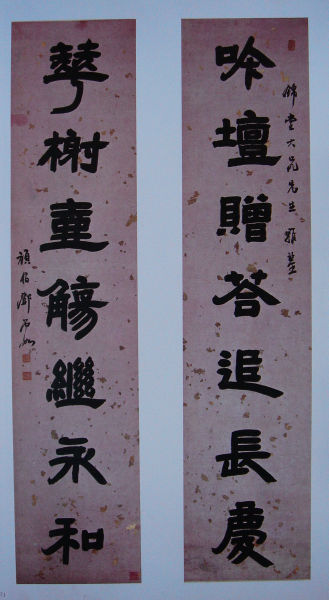 吟壇贈荅追長慶
錦堂大兄先生雅鑒
華榭壺觴繼永和
頑伯鄧石如